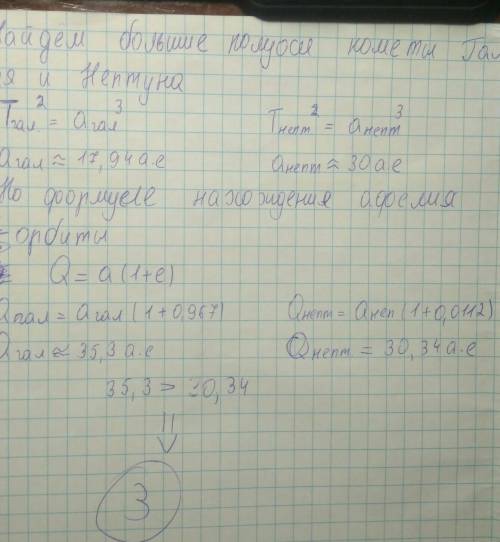 айдём большие полуоси кометы Гал
я и Нептуна
Tгал² = aгал³ Tнепт² = aнепт³
aгал ≈ 17,94 а.е aнепт ≈ 30 а.е
По формуле нахождения афелия
орбиты
Q = a(1+e)
Qгал = aгал(1+0,967) Qнепт = aнеп(1+0,0112)
Qгал ≈ 35,3 а.е Qнепт = 30,34 а.е
35,3 > 30,34
⇓
3